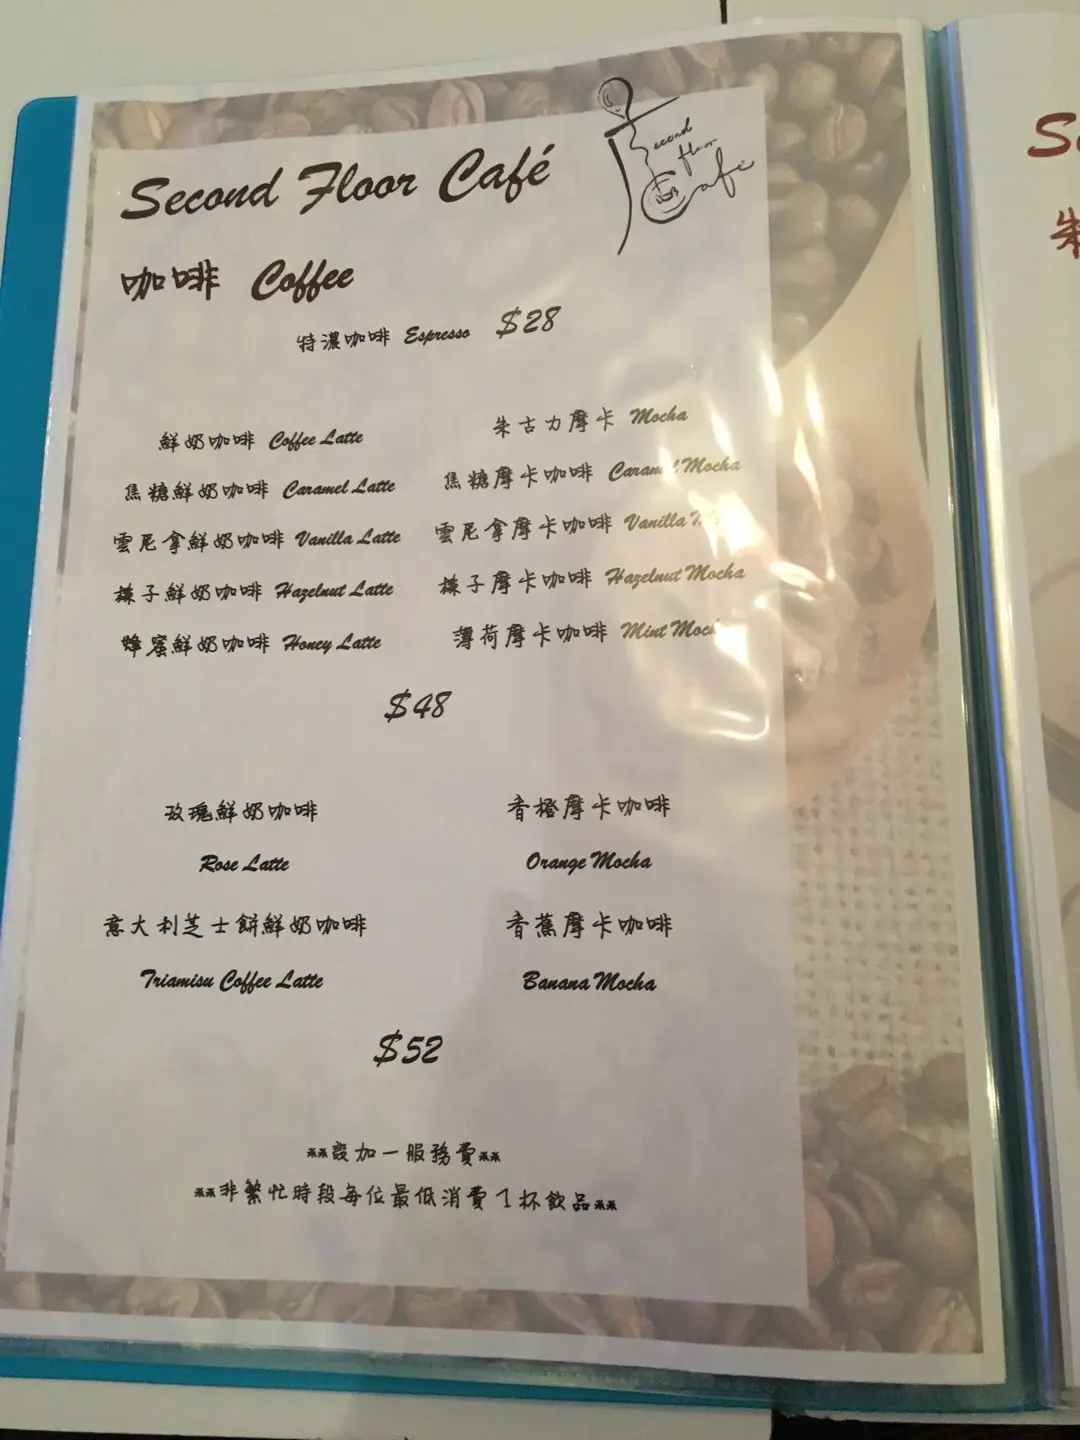 Second Floor Café
Second floor Cafe
咖啡 Coffee
特濃咖啡 Espresso $28
鮮奶咖啡 Coffee Latte
朱古力摩卡 Mocha
焦糖鮮奶咖啡 Caramel Latte
焦糖摩卡咖啡 Caramel Mocha
雲尼拿鮮奶咖啡 Vanilla Latte
雲尼拿摩卡咖啡 Vanilla
榛子鮮奶咖啡 Hazelnut Latte
榛子摩卡咖啡 Hazelnut Mocha
蜂蜜鮮奶咖啡 Honey Latte
薄荷摩卡咖啡 Mint Mocha
$48
玫瑰鮮奶咖啡
Rose Latte
香橙摩卡咖啡
Orange Mocha
意大利芝士餅鮮奶咖啡
Triamisu Coffee Latte
香蕉摩卡咖啡
Banana Mocha
$52
**設加一服務費**
**非繁忙時段每位最低消費1杯飲品**